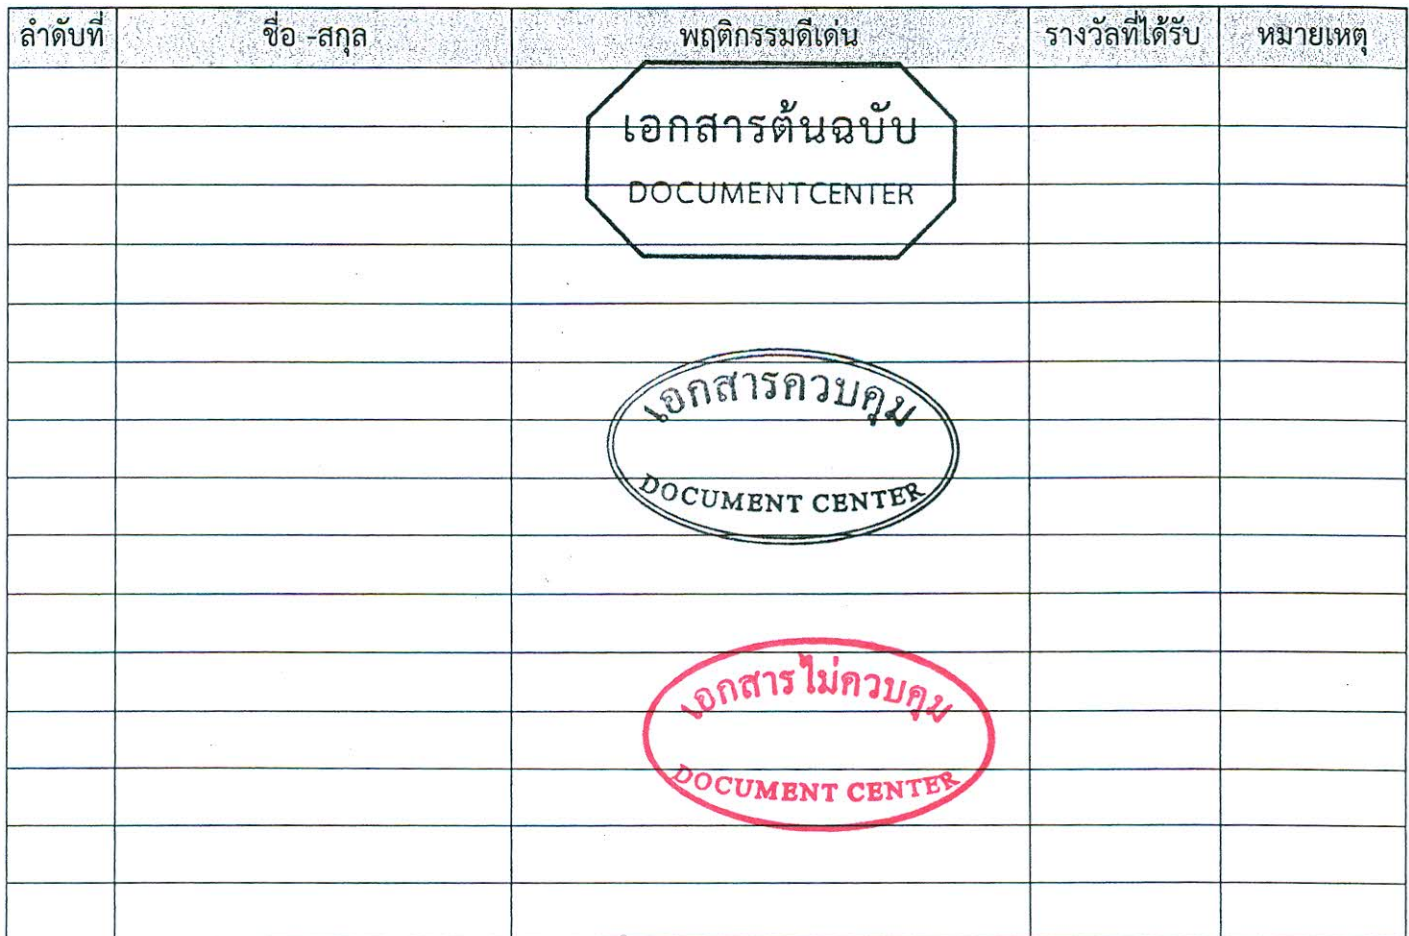 ลำดับที่ ชื่อ -สกุล พฤติกรรมดีเด่น รางวัลที่ได้รับ หมายเหตุ
เอกสารต้นฉบับ
DOCUMENTCENTER
เอกสารควบคุม
DOCUMENT CENTER
เอกสารไม่ควบคุม
DOCUMENT CENTER